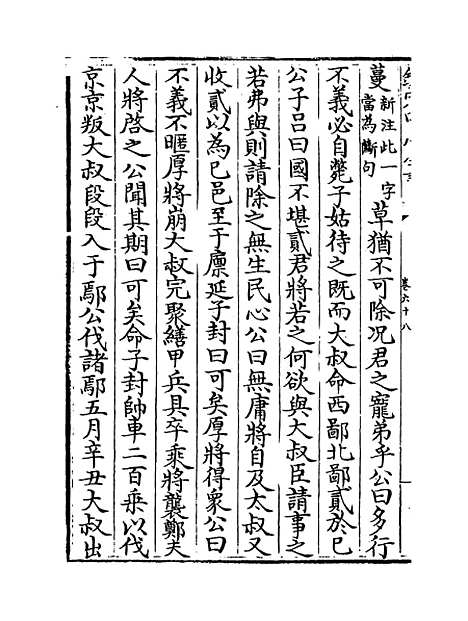 卷六十八
蔓新注此一字當為斷句草猶不可除况君之寵弟乎公曰多行
不義必自斃子姑待之既而大叔命西鄙北鄙貳於已
公子吕曰國不堪貳君將若之何欲與大叔臣請事之
若弗與則請除之無生民心公曰無庸將自及太叔又
收貳以為已邑至于廪延子封曰可矣厚將得衆公曰
不義不暱厚將崩大叔完聚繕甲兵具卒乘將襲鄭夫
人將啓之公聞其期曰可矣命子封帥車二百乘以伐
京京叛大叔段段入于鄢公伐諸鄢五月辛丑大叔出